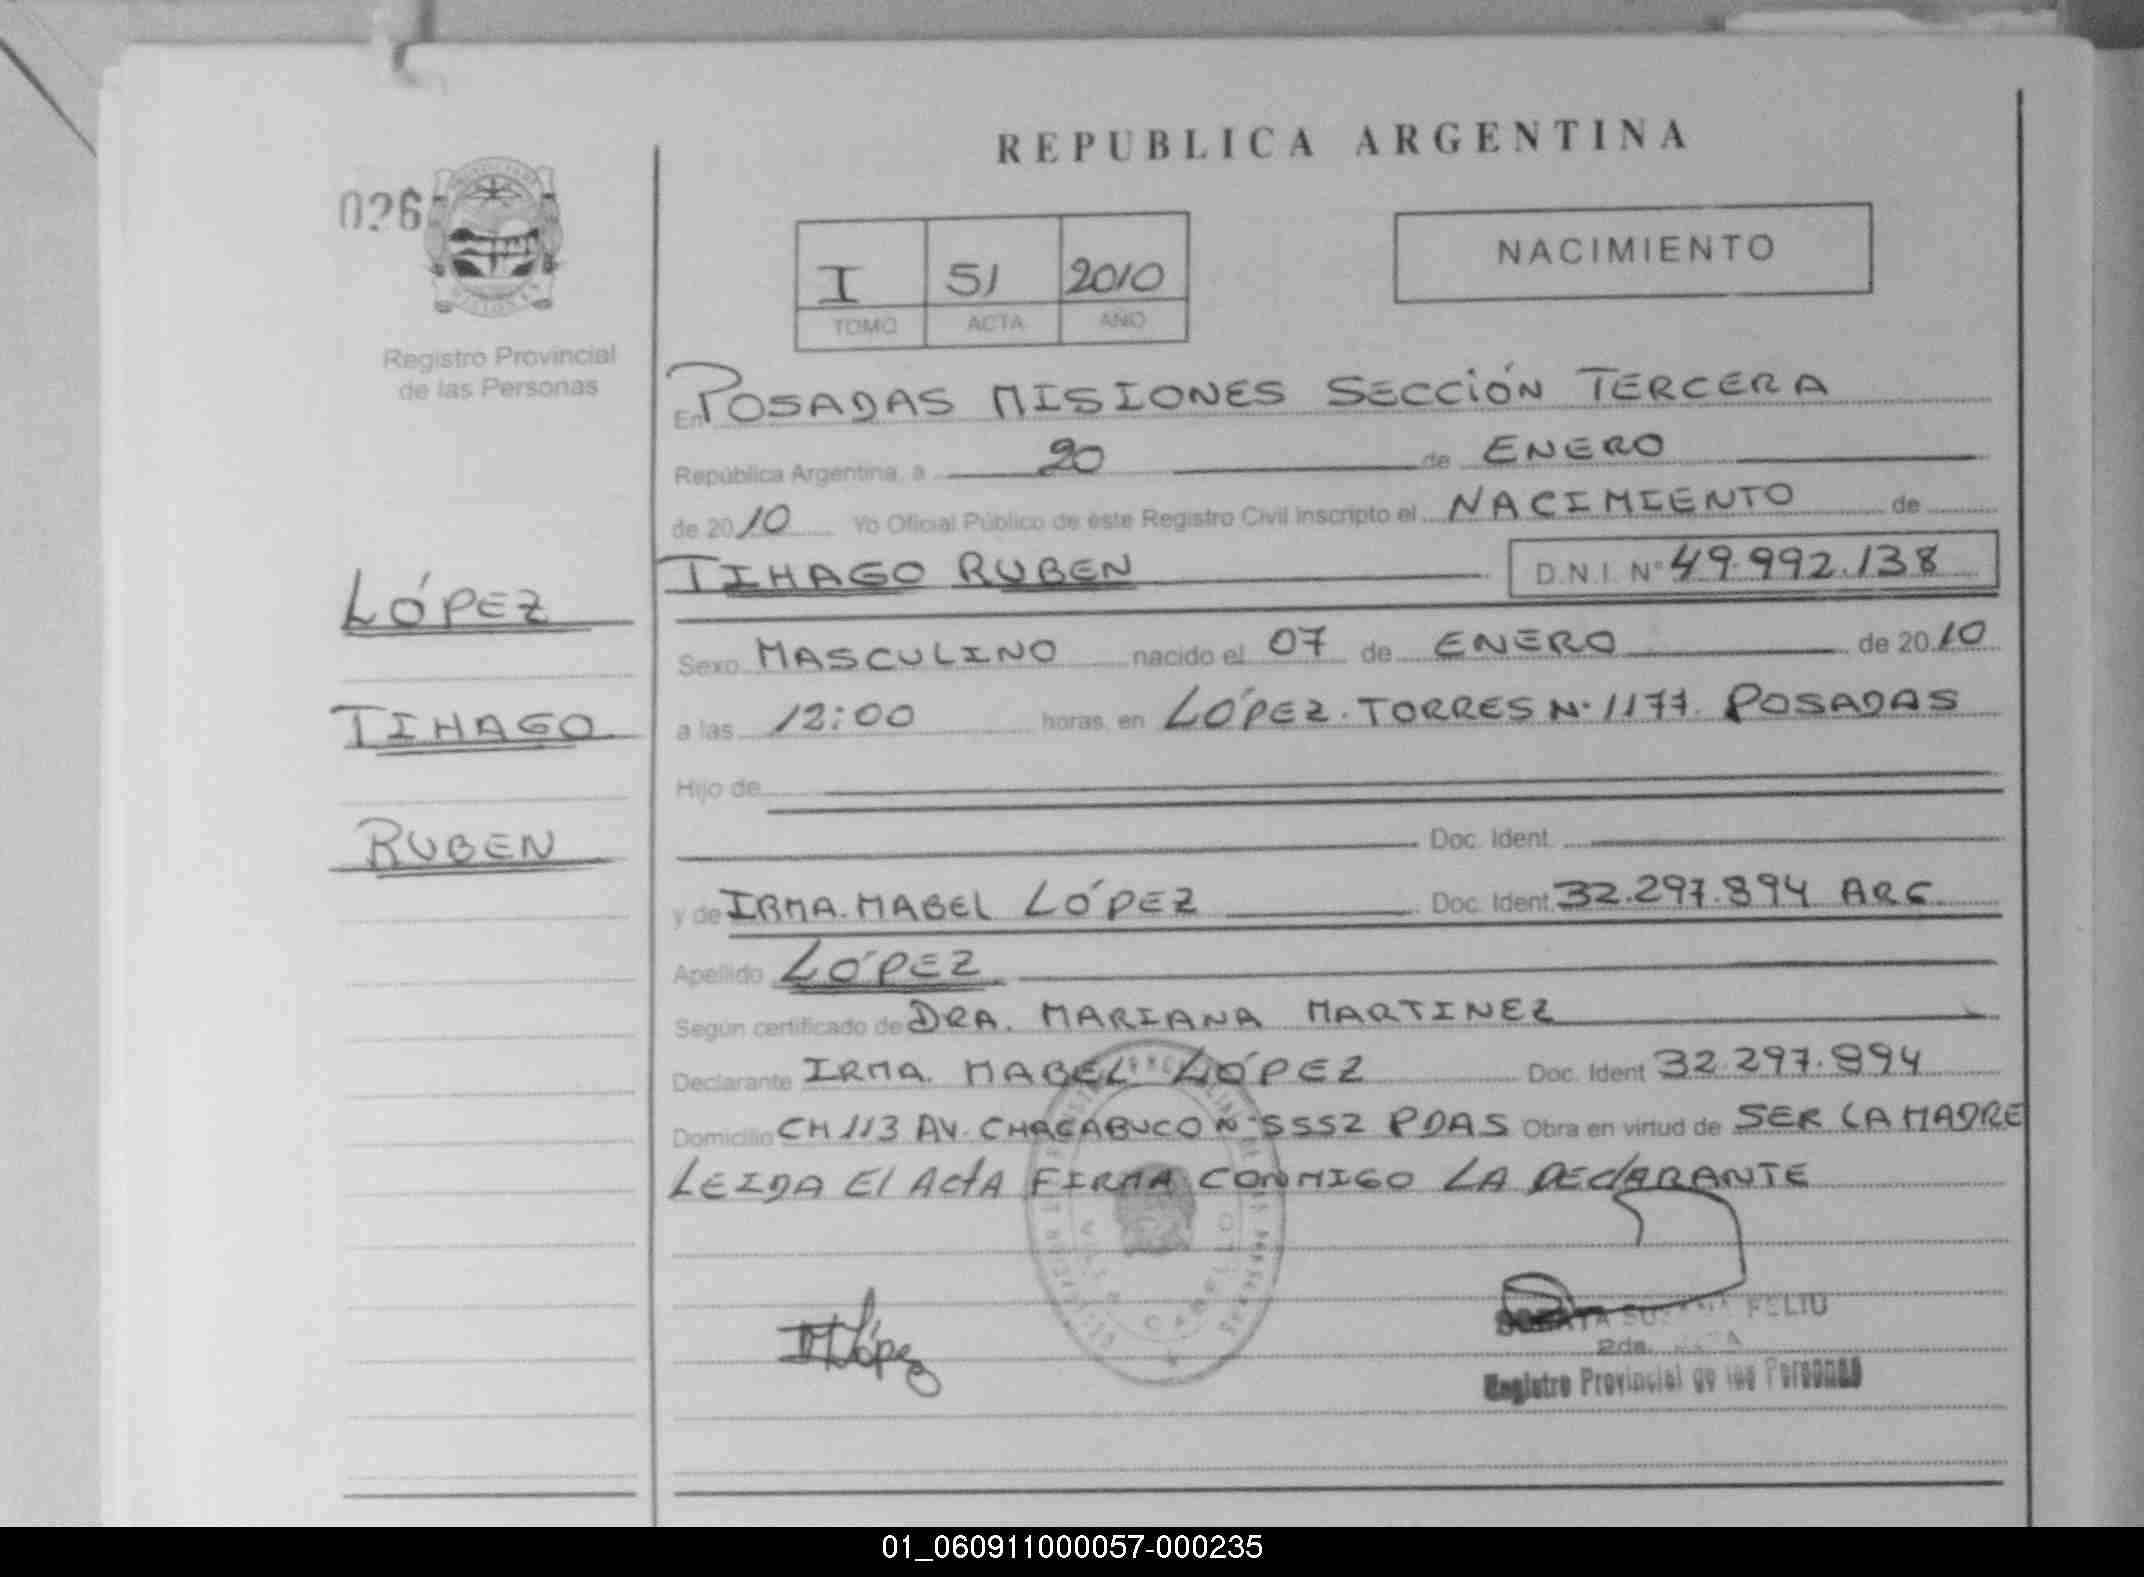 REPUBLICA ARGENTINA
026
I 51 2010
TOMO ACTA AÑO
NACIMIENTO
Registro Provincial
de las Personas
En POSADAS MISIONES SECCIÓN TERCERA
República Argentina, a 20 de ENERO
de 2010 Yo Oficial Público de éste Registro Civil inscripto el NACIMIENTO de
TIHAGO RUBEN D.N.I. Nº 49.992.138
LÓPEZ
TIHAGO
RUBEN
Sexo MASCULINO nacido el 07 de ENERO de 2010
a las 12:00 horas, en LÓPEZ. TORRES N. 1177. POSADAS
Hijo de
Doc. Ident.
y de IRMA. MABEL LÓPEZ Doc. Ident. 32.297.894 ARG
Apellido LÓPEZ
Según certificado de DRA. MARIANA MARTINEZ
Declarante IRMA. MABEL LÓPEZ Doc. Ident 32.297.894
Domicilio CH 113 AV. CHACABUCO N. 5552 PDAS Obra en virtud de SER LA MADRE
LEIDA El ActA FIRMA CONMIGO LA DEClARANTE
IMLópez
FELTU
2da.
Registro Provincial de las Personas
01_060911000057-000235